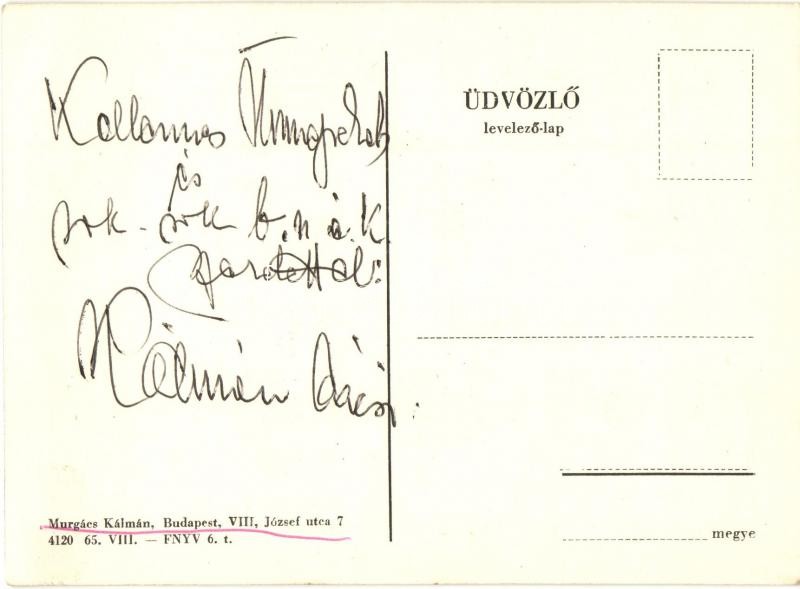 Kellemes Ünnepeket
és
sok-sok b.n.á.k
szeretettel:
Kálmán bácsi
Murgács Kálmán, Budapest, VIII, József utca 7
4120 65. VIII. — FNYV 6. t.
ÜDVÖZLŐ
levelező-lap
megye